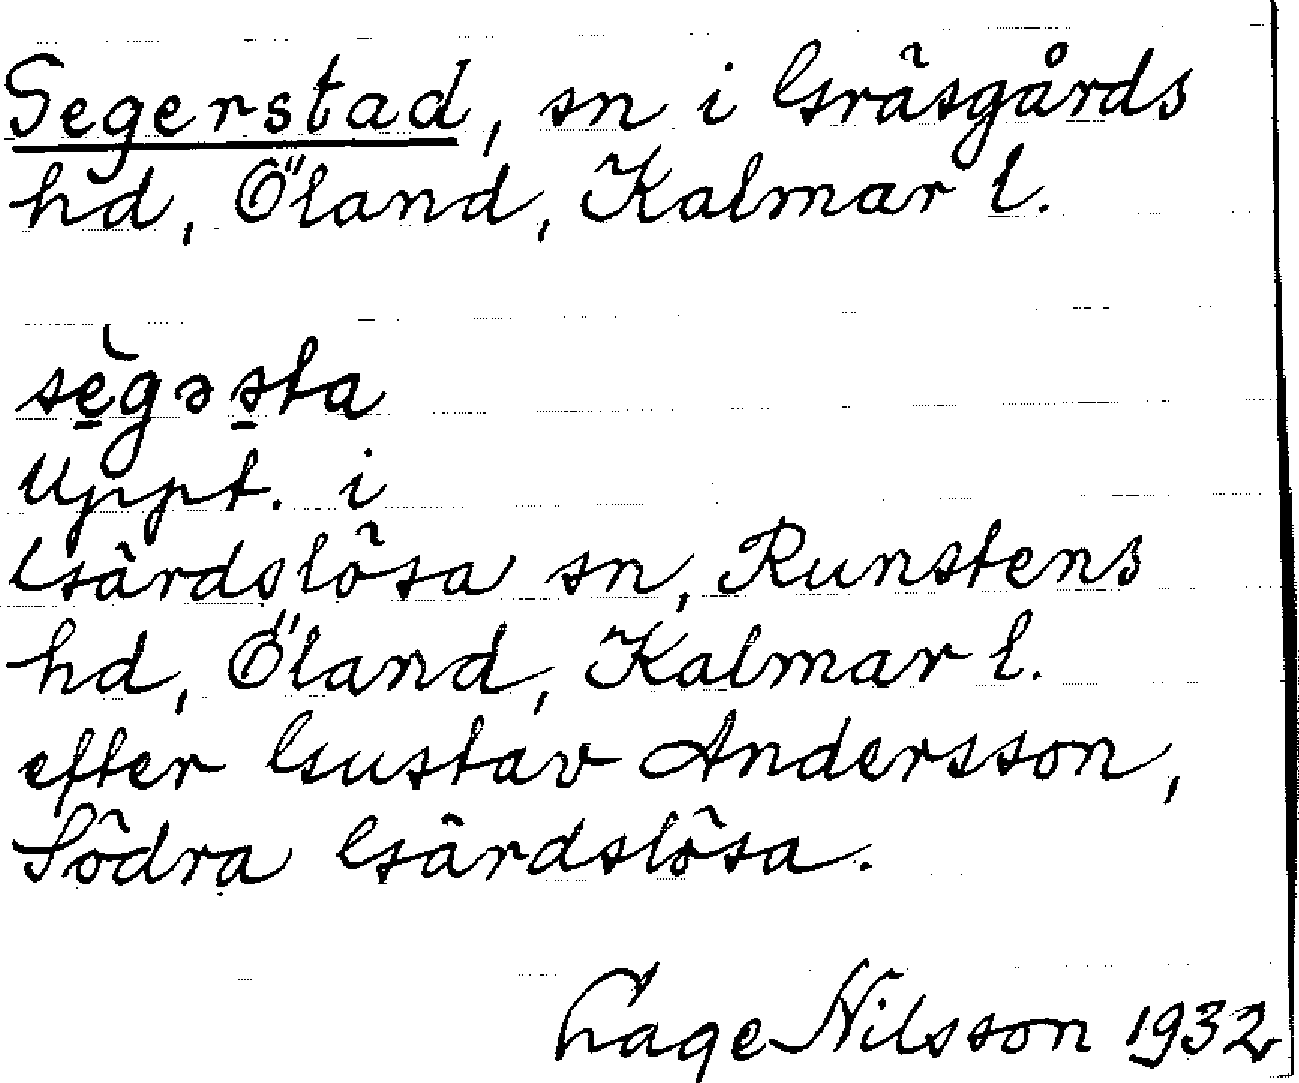 Segerstad, sn i Gräsgårds
hd, Öland, Kalmar l.
sè̱gəs̱ta
Uppt. i
Gärdslösa sn, Runstens
hd, Öland, Kalmar l.
efter Gustav Andersson,
Södra Gärdslösa.
Lage Nilsson 1932